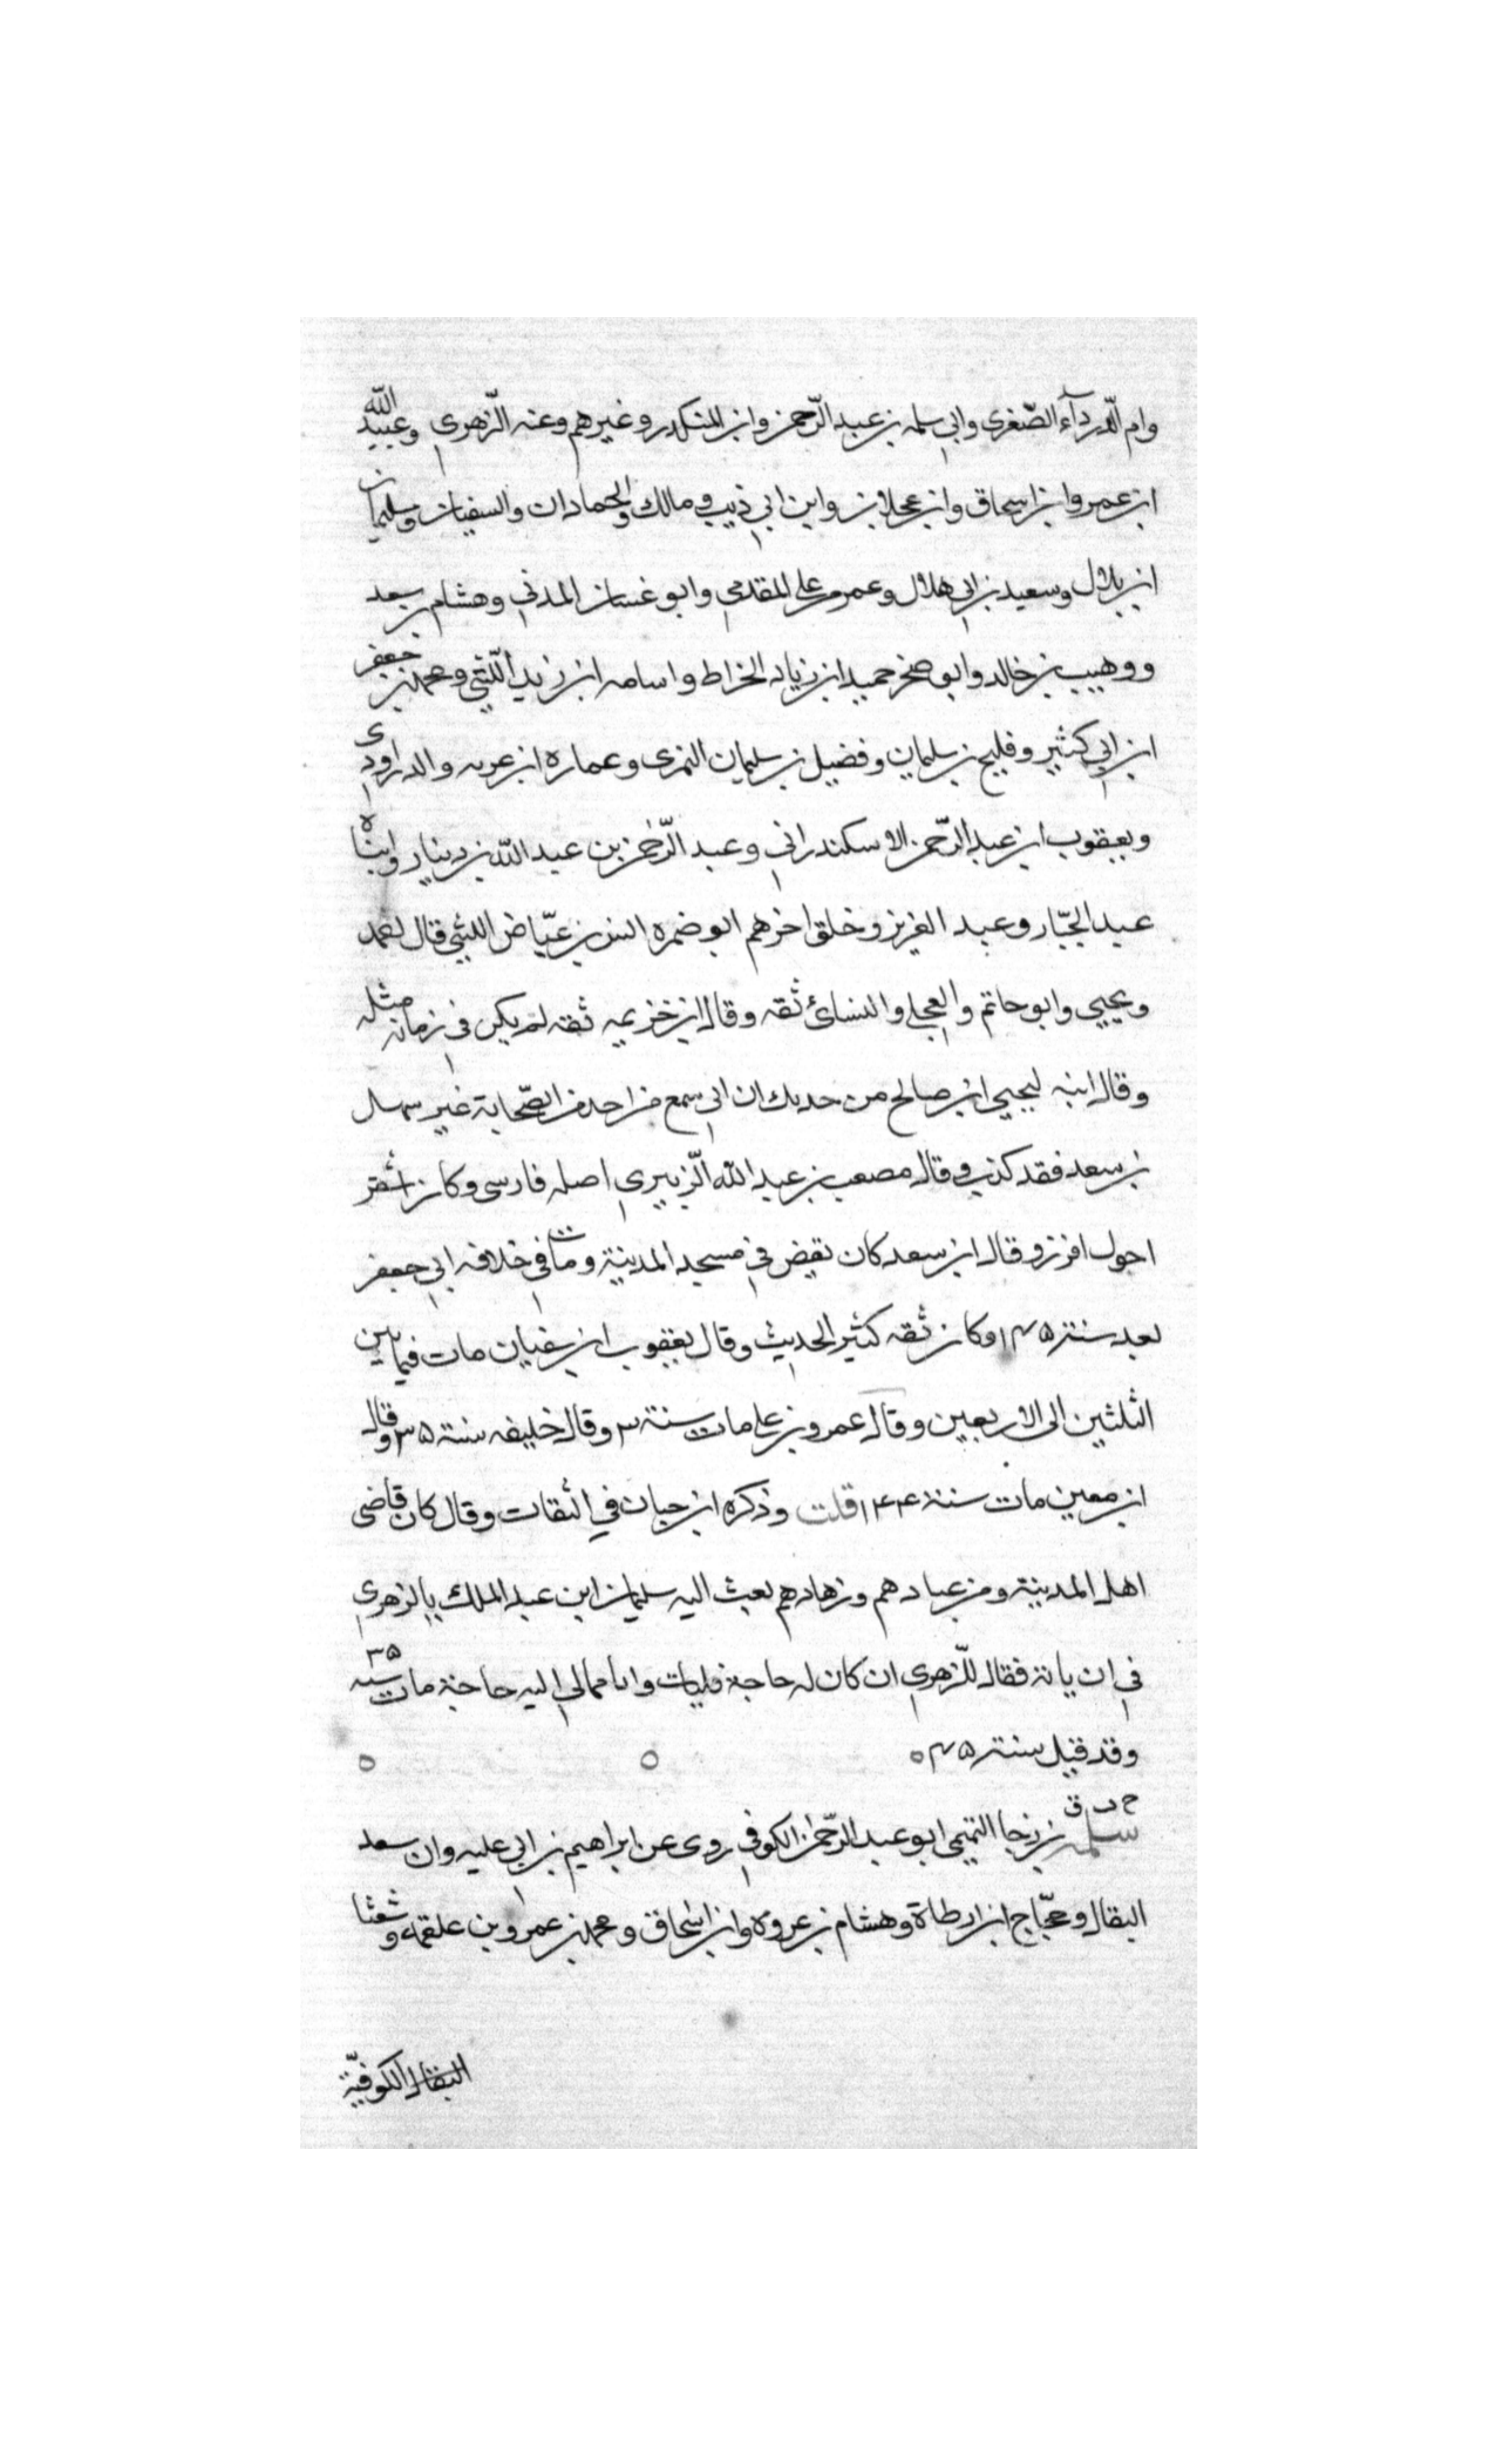 وام الدرداء الصغرى وابي سلمه بن عبد الرحمن وابن المنكدر وغيرهم وعنه الزهري وعبيد الله
ابن عمر وابن اسحاق وابن عجلان وابن ابي ذيب ومالك والحمادان والسفيان وسليمان
ابن بلال وسعيد بن ابي هلال وعمر بن علي المقدمي وابو غسان المدني وهشام بن سعد
ووهيب بن خالد وابو صخر حميد ابن زياد الخراط واسامه ابن زيد الليثي ومحمد بن جعفر
ابن ابي كثير وفليح بن سليمان وفضيل بن سليمان النمرى وعماره ابن عربه والدراوردى
ويعقوب ابن عبد الرحمن الاسكندراني وعبد الرحمن بن عبد الله بن دينار وابناه
عبد الجبار وعبد العزيز وخلق اخرهم ابو ضمره انس بن عياض الليثي قال احمد
ويحيى وابو حاتم والعجلي والنسائ ثقه وقال ابن خزيمه ثقه لم يكن في زمانه مثله
وقال ابنه ليحيى ابن صالح من حدثك ان ابي سمع من احد من الصحابة غير سهل
بن سعد فقد كذب وقال مصعب بن عبد الله الزبيري اصله فارسى وكان اشقر
احول افزر وقال ابن سعد كان يقض في مسجد المدينة ومات في خلافه ابي جعفر
بعد سنة ١٤٥ وكان ثقه كثير الحديث وقال يعقوب ابن سفيان مات فيما بين
الثلثين الى الاربعين وقال عمرو بن علي مات سنة ٣ وقال خليفه سنة ٣٥ وقال
ابن معين مات سنة ١٤٤ قلت وذكره ابن حبان في الثقات وقال كان قاضى
اهل المدينة ومن عبادهم وزهادهم بعث اليه سليمان ابن عبد الملك بالزهري
في ان ياته فقال للزهري ان كان له حاجة فليات واما انا فمالي اليه حاجة مات سنه ٣٥
وقد قيل سنة ٤٥
ح د ق
سلمة بن رجا التميمى ابو عبد الرحمن الكوفي روى عن ابراهيم بن ابي عليه وابي سعد
البقال وحجاج ابن ارطاة وهشام بن عروه وابن اسحاق ومحمد بن عمرو بن علقمة وشعثا
الكوفية